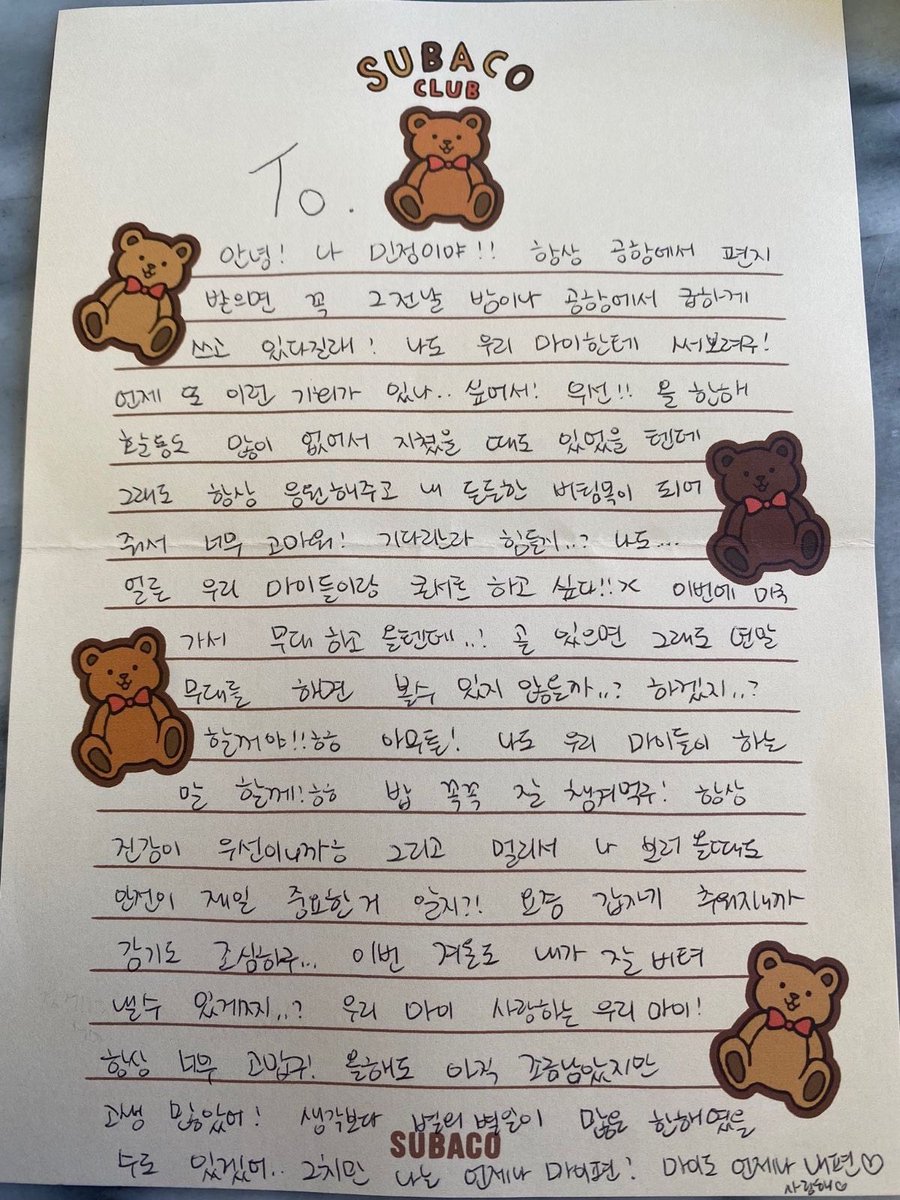 SUBACO
CLUB
To.
안녕! 나 민정이야!! 항상 공항에서 편지
받으면 꼭 그전날 밤이나 공항에서 급하게
쓰고 있다길래! 나도 우리 마이한테 써보려구!
언제 또 이런 기회가 있나.. 싶어서! 우선!! 올 한해
활동도 많이 없어서 지쳤을 때도 있었을 텐데
그래도 항상 응원해주고 내 든든한 버팀목이 되어
줘서 너무 고마워! 기다리느라 힘들지..? 나도...
얼른 우리 마이들이랑 콘서트 하고 싶다!! 이번에 미국
가서 무대 하고 올텐데..! 곧 있으면 그래도 연말
무대를 해면 볼수 있지 않을까..? 하겠지..?
할꺼야!!ㅎㅎ 아무튼! 나도 우리 마이들이 하는
말 할게!ㅎㅎ 밥 꼭꼭 잘 챙겨먹구! 항상
건강이 우선이니까ㅎ 그리고 멀리서 나 보러 올때도
안전이 제일 중요한거 알지?! 요즘 갑자기 추워지니까
감기도 조심하구... 이번 겨울도 내가 잘 버텨
낼수 있게찌..? 우리 마이 사랑하는 우리 마이!
항상 너무 고맙구! 올해도 아직 조금남았지만
고생 많았어! 생각보다 별의 별일이 많은 한해였을
SUBACO
수도 있겠어.. 그치만 나는 언제나 마이편! 마이도 언제나 내편♡
사랑해♡